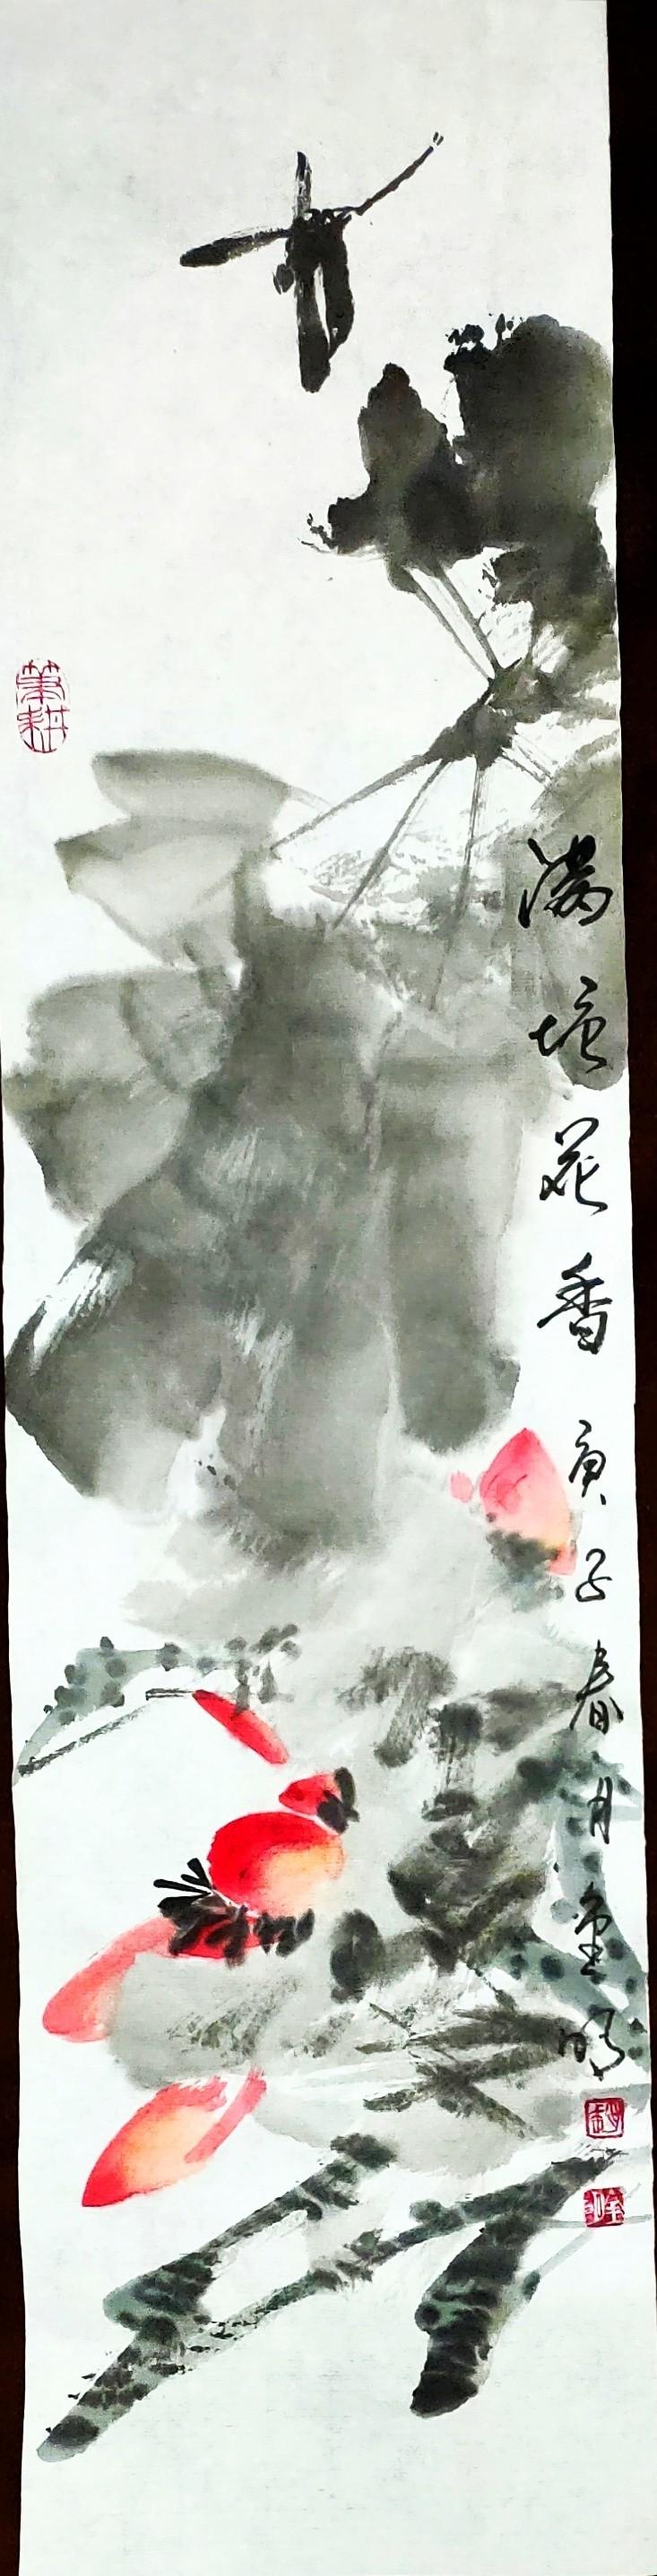 满塘花香 庚子春月
笔耕